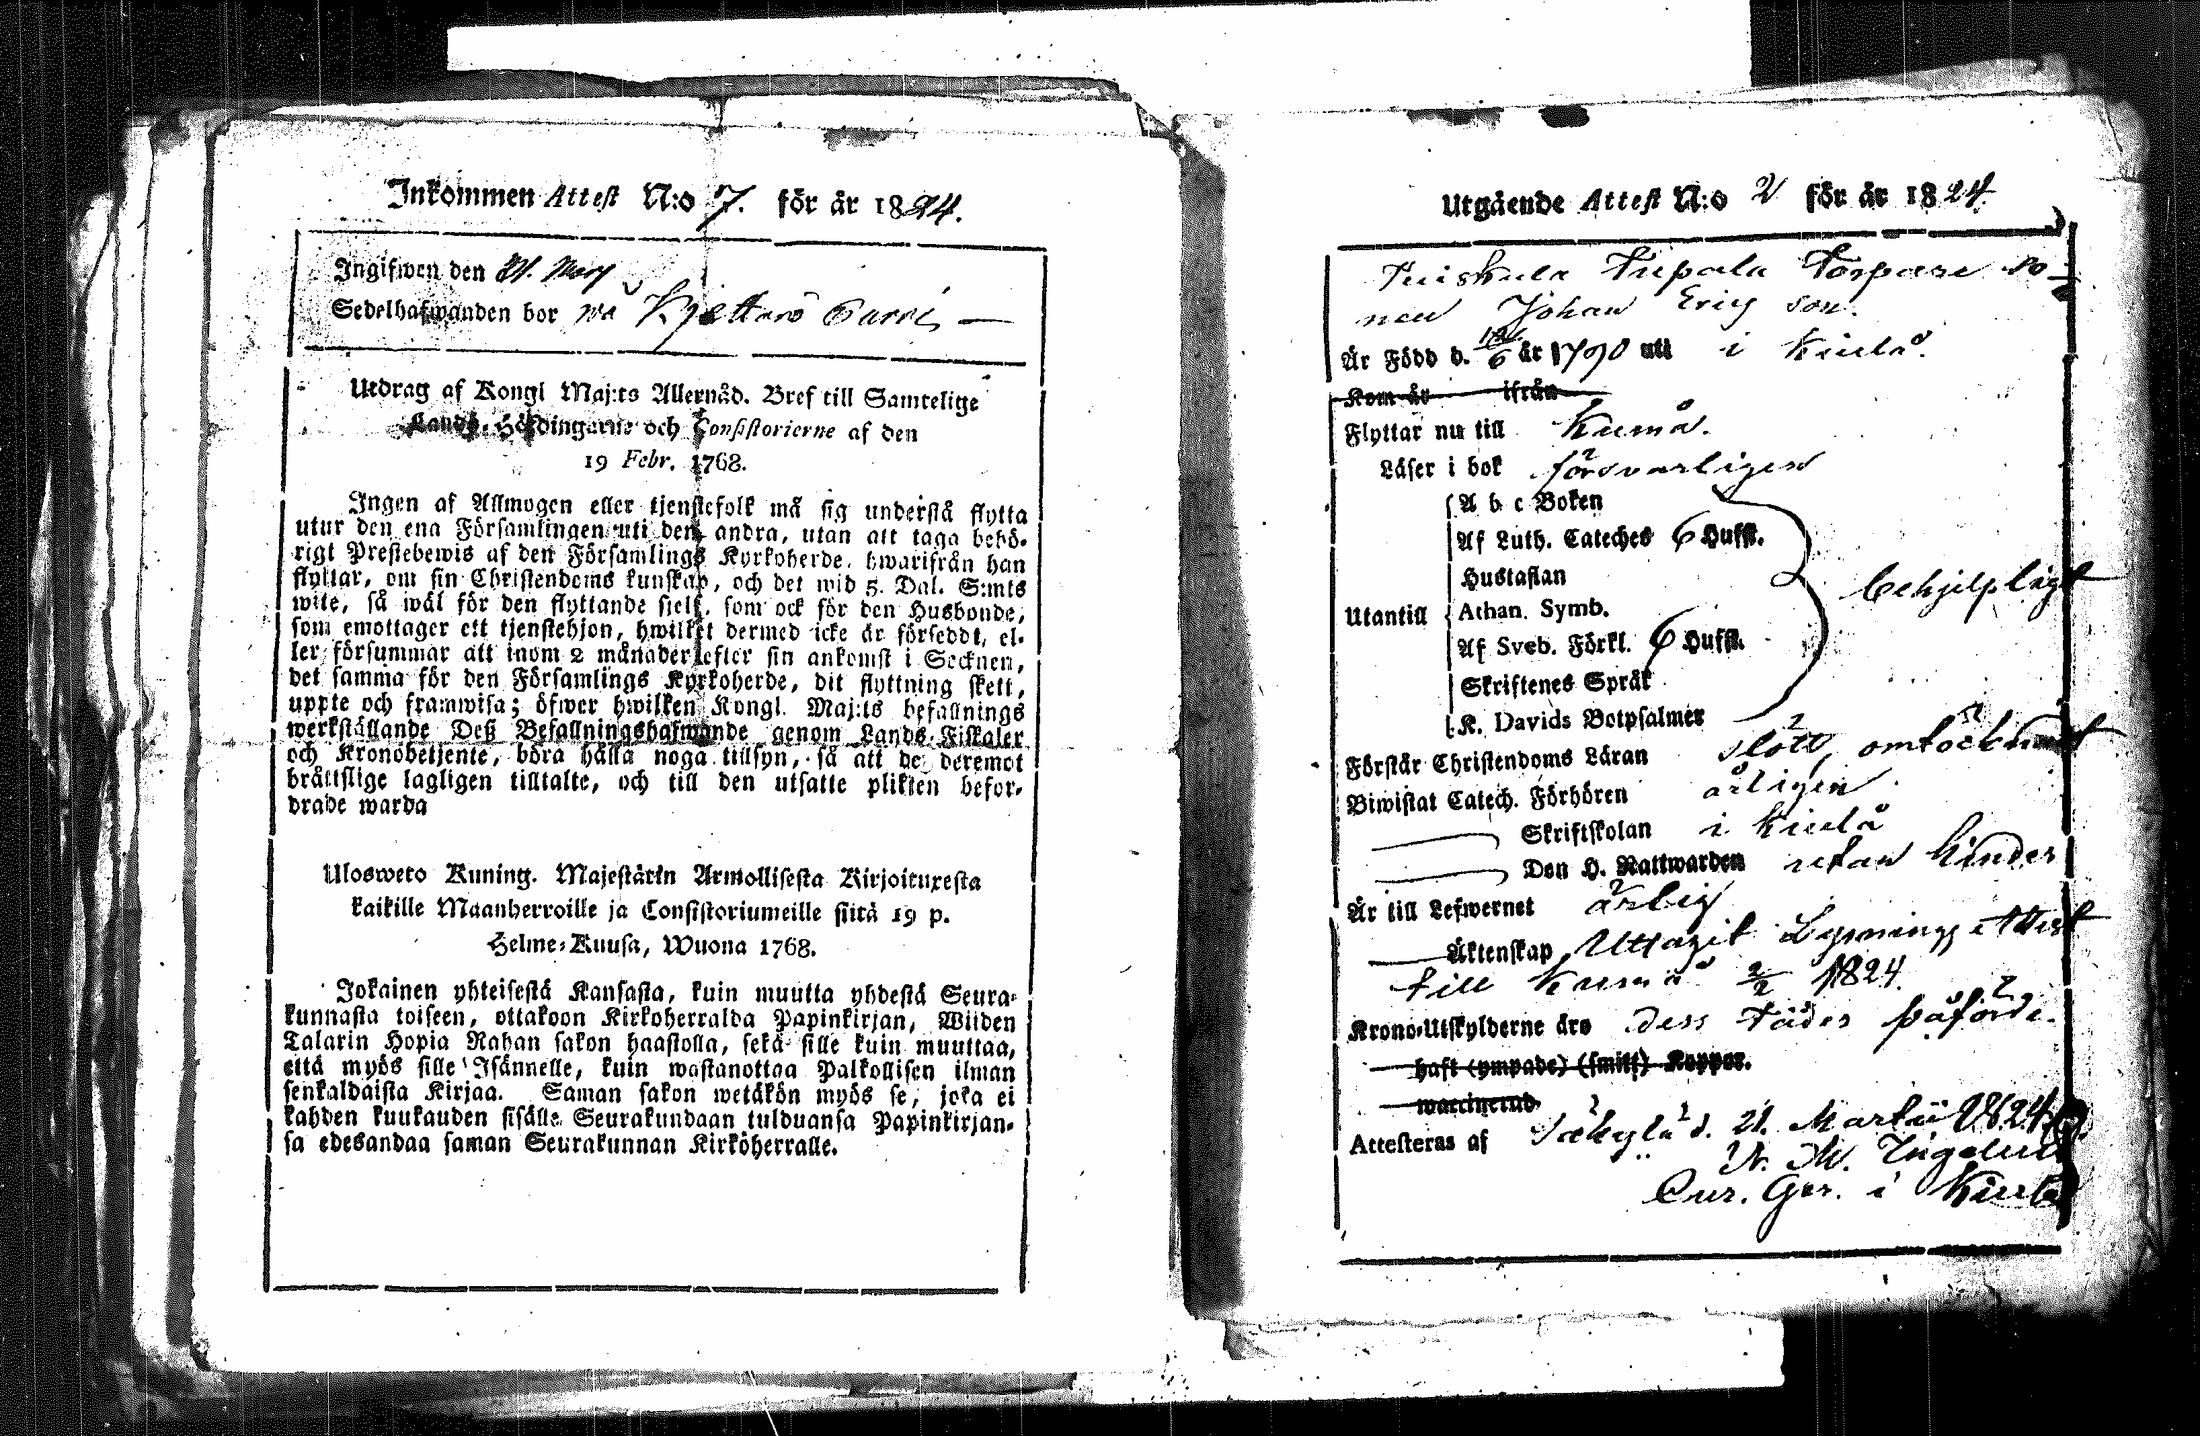 Inkommen Attest N:o 7. för år 1824.
Ingifwen den 21. Marj
Sedelhafwanden bor på Kjettarö
Utdrag af Kongl Maj:ts Allernåd. Bref till Samtelige
Lands-Höfdingarne och Consistorierne af den
19 Febr. 1768.
Ingen af Allmogen eller tjenstefolk må sig understå flytta
utur den ena Församlingen uti den andra, utan att taga behö-
rigt Prestebewis af den Församlings Kyrkoherde, hwarifrån han
flyttar, om sin Christendoms kunskap, och det wid 5. Dal. S:mts
wite, så wäl för den flyttande sjelf, som ock för den Husbonde,
som emottager ett tjenstehjon, hwilket dermed icke är försedt, el-
ler försummar att inom 2 månader efter sin ankomst i Socknen,
det samma för den Församlings Kyrkoherde, dit flyttning skett,
uppte och framwisa; öfwer hwilken Kongl. Maj:ts befallnings
werkställande Deß Befallningshafwande genom Lands-Fiskaler
och Kronobetjente, böra hålla noga tillsyn, så att de deremot
bråttslige lagligen tilltalte, och till den utsatte plikten befor-
drade warda
Ulosweto Kuning. Majestätin Armollisesta Kirjoituxesta
kaikille Maanherroille ja Consistoriumeille siitä 19 p.
Helme-Kuusa, Wuona 1768.
Jokainen yhteisestä Kansasta, kuin muutta yhdestä Seura-
kunnasta toiseen, ottakoon Kirkoherralda Papinkirjan, Wiiden
Talarin Hopia Rahan sakon haastolla, sekä sille kuin muuttaa,
että myös sille Isännelle, kuin wastanottaa Palkollisen ilman
senkaldaista Kirjaa. Saman sakon wetäkön myös se, joka ei
kahden kuukauden sisälle Seurakundaan tulduansa Papinkirjan-
sa edesandaa saman Seurakunnan Kirköherralle.
Utgående Attest N:o 2 för år 1824.
Torpare so-
nen Johan Ericsson.
Är Född d. 6 år 1790 uti i Kiulo.
Kom år ifrån
Flyttar nu till Kumå.
Läser i bok försvarligen
A b c Boken
Af Luth. Cateches 6 Hufst.
Hustaflan
Utantill Athan. Symb. behjelpligt
Af Sveb. Förkl. 6 Hufst.
Skriftenes Språk
K. Davids Botpsalmer
Förstår Christendoms Läran slött, omtöcknat
Biwistat Catech. Förhören årligen
Skriftskolan i Kiulo
Den H. Nattwarden utan hinder
Är till Lefwernet ärlig
Äktenskap Uttagit Lysnings Attest
till Kumå 2/2 1824.
Krono-Utskylderne äro dess fader påförde.
haft (ympade) (smitt) Koppor.
waccinerad
Attesteras af Säkylä d. 21. Martii 1824.
N. M. Ingelius
Cur. Ger. i Kiulo